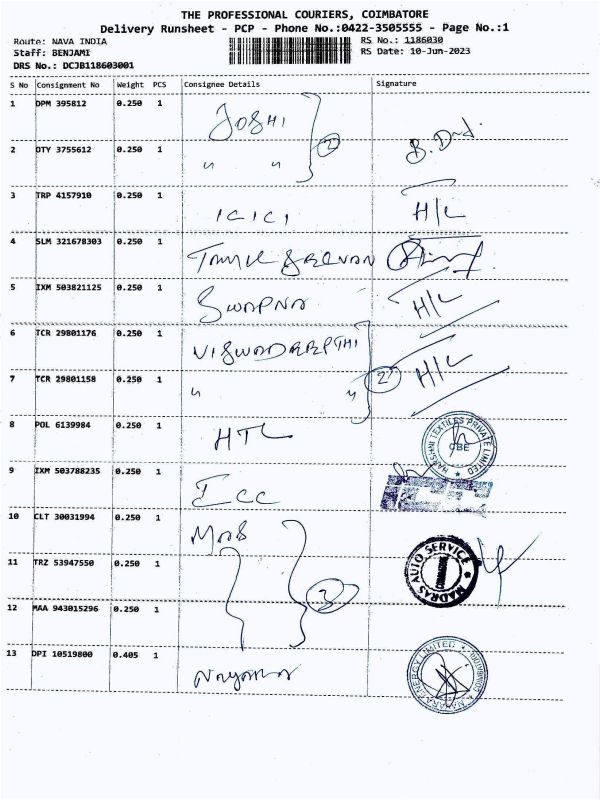 THE PROFESSIONAL COURIERS, COIMBATORE
Delivery Runsheet - PCP - Phone No.:0422-3505555 - Page No.:1
Route: NAVA INDIA RS No.: 1186030
Staff: BENJAMI RS Date: 10-Jun-2023
DRS No.: DCJB118603001
S No Consignment No Weight PCS Consignee Details Signature
1 DPM 395812 0.250 1 JOSHI
2 OTY 3755612 0.250 1 " " 2 B. Dnd.
3 TRP 4157910 0.250 1 ICICI H/L
4 SLM 321678303 0.250 1
5 IXM 503821125 0.250 1 SWAPNA H/L
6 TCR 29801176 0.250 1 VISWADEEPTHI
7 TCR 29801158 0.250 1 " " 2 H/L
8 POL 6139984 0.250 1 HTL HARSHNI TEXTILES PRIVATE LIMITED CBE
9 IXM 503788235 0.250 1 ICC
10 CLT 30031994 0.250 1 MAS
11 TRZ 53947550 0.250 1 MADRAS AUTO SERVICE
12 MAA 943015296 0.250 1 2
13 DPI 10519800 0.405 1 NAYARA NAYARA ENERGY LIMITED